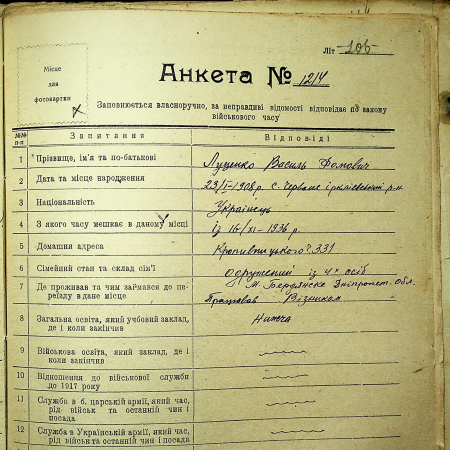 Літ 206
Місце
для
фотокартки
Анкета № 1214
Заповнюється власноручно, за неправдиві відомості відповідає по закону
військового часу
№№ п-п Запитання Відповіді
1 Прізвище, ім'я та по-батькові Луценко Василь Фомович
2 Дата та місце народження 23/I-1908 р. с. Червоне р-н
3 Національність Українець
4 З якого часу мешкає в даному місці із 16/XI-1936 р.
5 Домашня адреса Кропивницького 331
6 Сімейний стан та склад сім'ї одружений із 4х осіб
7 Де проживав та чим займався до переїзду в дане місце м. Бердянске Дніпропет. обл.
Працював Візником
8 Загальна освіта, який учбовий заклад, де і коли закінчив Нижча
9 Військова освіта, який заклад, де і коли закінчив
10 Відношення до військової служби до 1917 року
11 Служба в б. царській армії, який час, рід військ та останній чин і посада
12 Служба в Українській армії, який час, рід військ та останній чин і посада